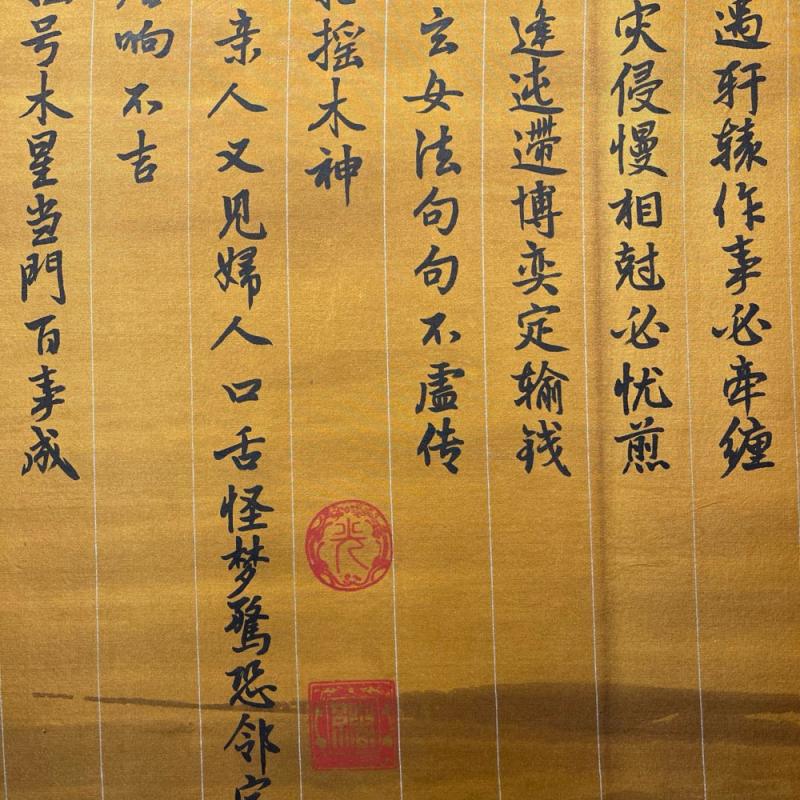 遇轩辕作事必牵缠
灾侵慢相尅必忧煎
逢迍遭博奕定输钱
玄女法句句不虚传
摇木神
亲人又见婦人口舌怪梦驚恐邻
响不吉
号木星当門百事成
光